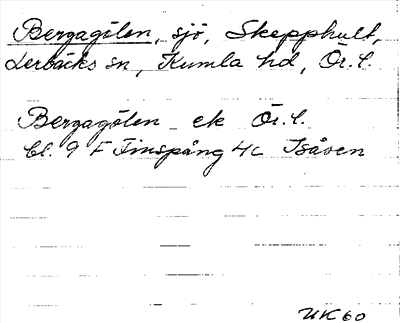 Bergagölen, sjö, Skepphult,
Lerbäcks sn, Kumla hd, Ör. l.
Bergagölen ek Ör. l.
bl. 9 F Finspång 4c Isåsen
UK 60